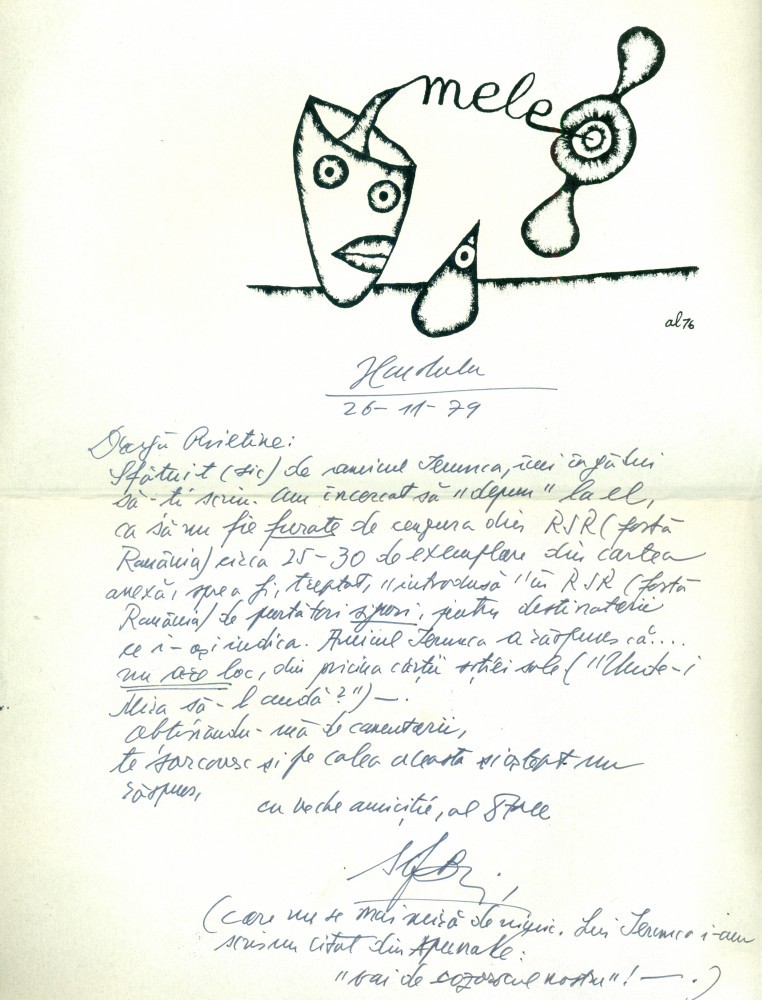 mele
al 76
Honolulu
26-11-79
Dragă Prietine:
Sfătuit (sic) de amicul Ierunca, îmi îngădui
să-ți scriu. Am încercat să "depun" la el,
ca să nu fie furate de cenzura din RSR (fostă
România) circa 25-30 de exemplare din cartea
anexă, spre a fi, treptat, "introdusă" în RSR (fostă
România) de purtători siguri, pentru destinatarii
ce i-aș indica. Amicul Ierunca a răspuns că...
nu are loc, din pricina cărții soției sale ("Unde-i
Miza să-l audă?") —.
Obținându-mă de comentarii,
te sorcovesc și pe calea aceasta și aștept un
răspuns,
cu veche amiciție, al Tale
(care nu se mai miră de nimic. Lui Ierunca i-am
scris un citat din Apunake:
"vai de cozorocul nostru"! — .)